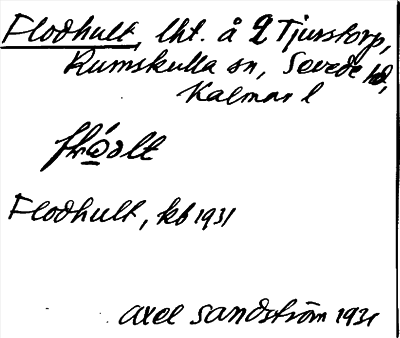 Flodhult, lht. å 2 Tjurstorp,
Rumskulla sn, Sevede hd,
Kalmar l
Flodhult, kb 1931
Axel Sandström 1931